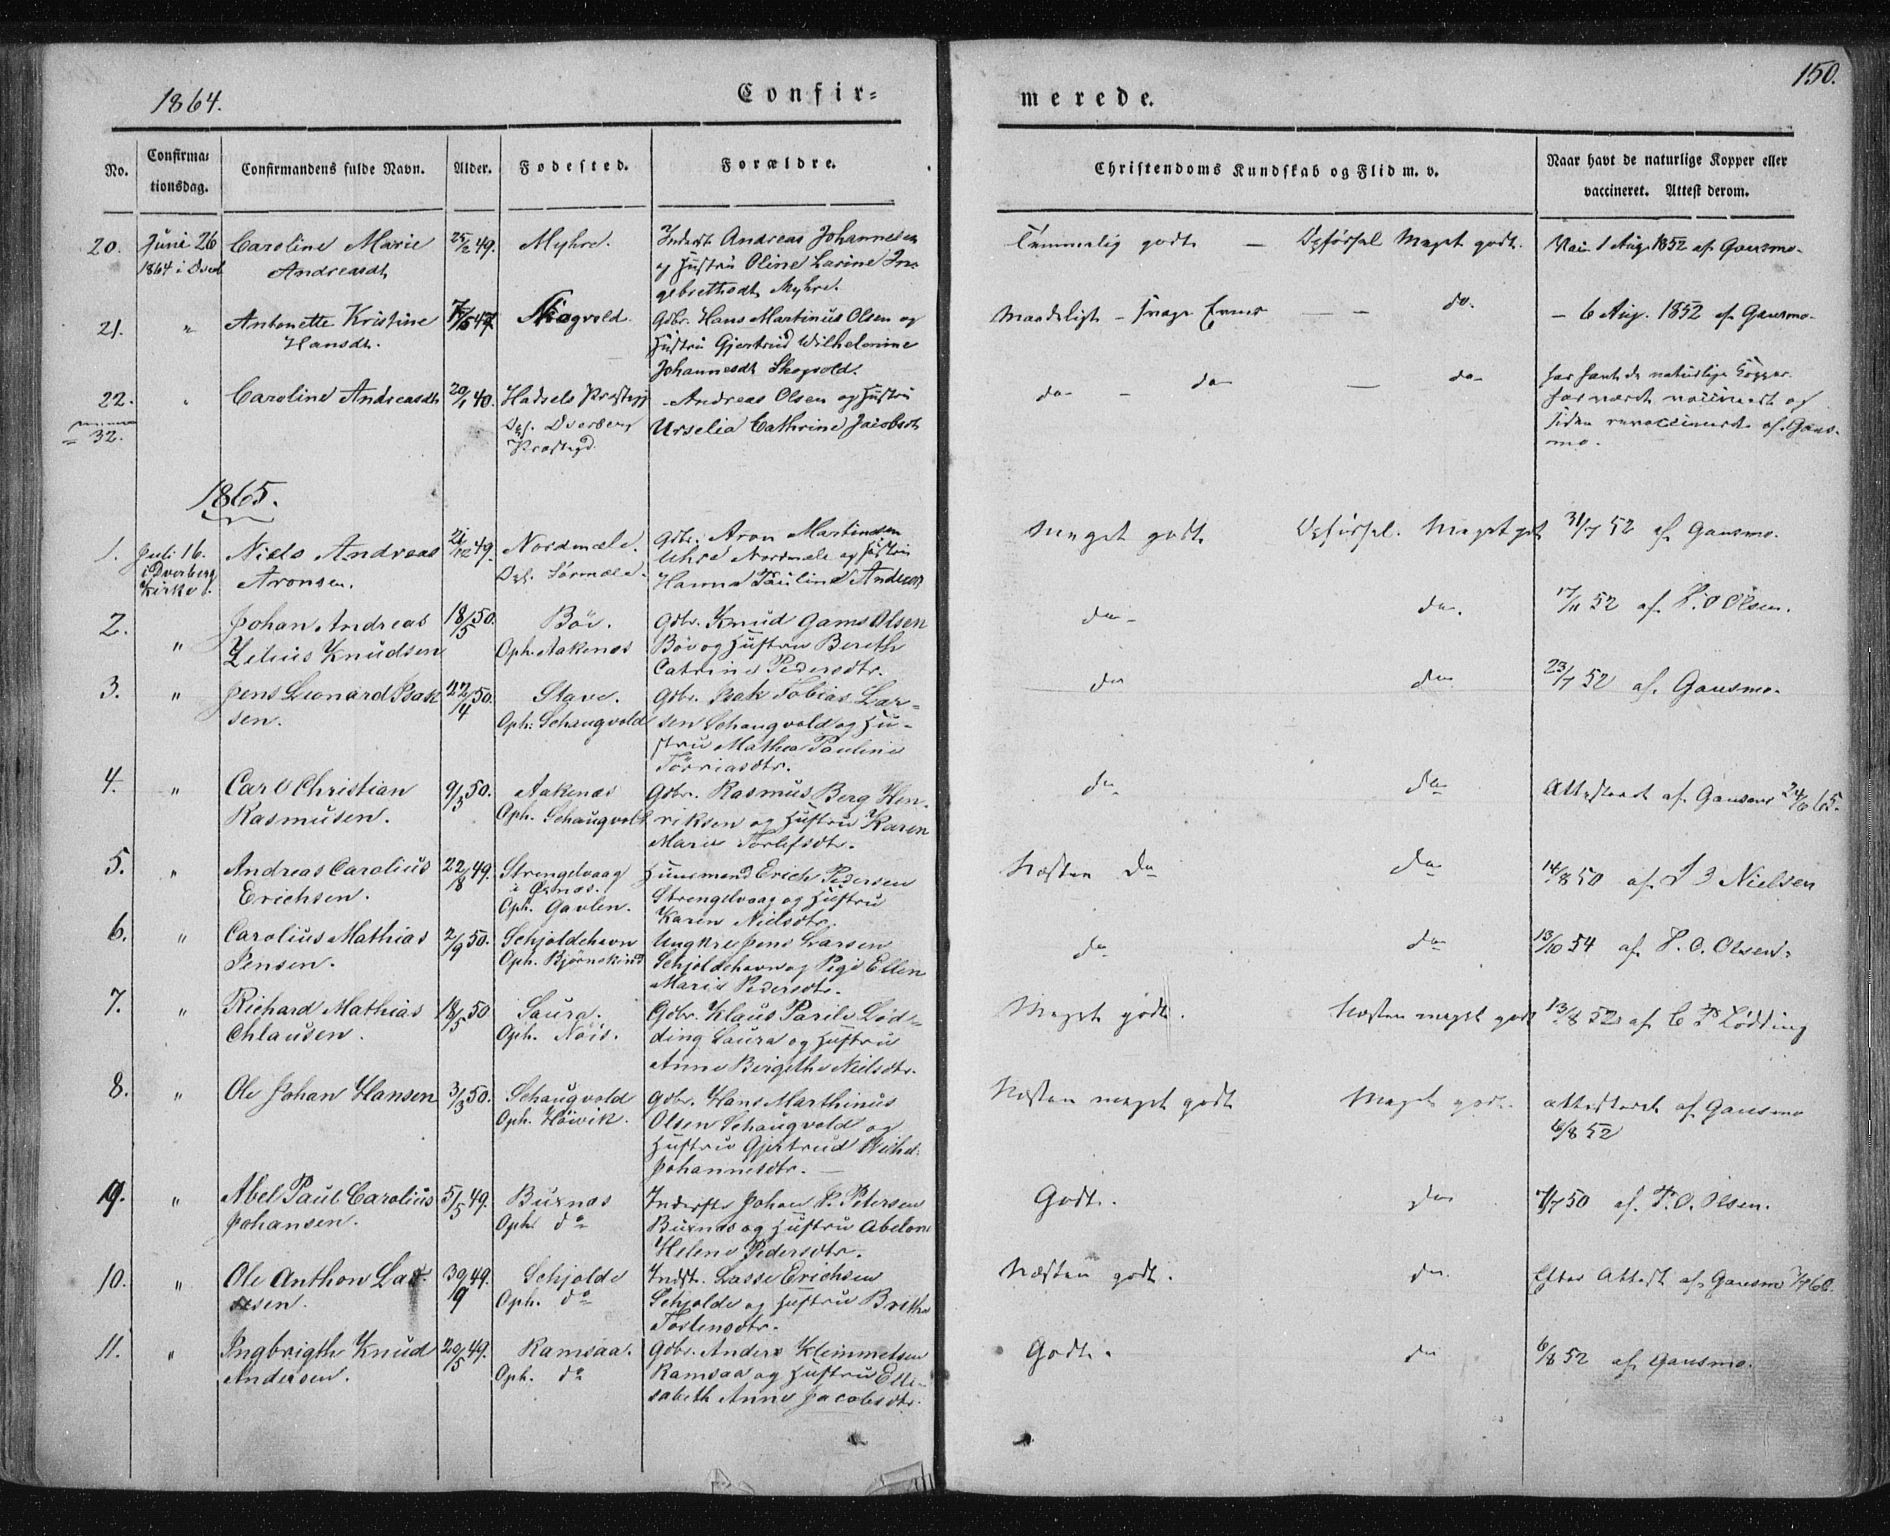 1864.
Confir=
merede.
150.
No.
Confirma=
tionsdag.
Confirmandens fulde Navn.
Alder.
Fødested.
Forældre.
Christendoms Kundskab og Flid m. v.
Naar havt de naturlige Kopper eller
vaccineret. Attest derom.
20.
Juni 26
1864 i Dverb
Caroline Marie
Andreasdt
25/2 49.
Myhre.
Inderst Andreas Johannesen
og Hustru Oline Larine In=
gebrethsdt Myhre.
Temmelig godt — Opførsel Meget godt.
Vac. 1 Aug. 1852 af Gausmo.
21.
"
Antonette Kristine
Hansdt.
Skogvold.
Gdbr. Hans Martinus Olsen og
Hustru Gjertrud Wilhelmine
Johannesdt Skogvold.
Maadeligt — svage Evner — — do.
— 6 Aug. 1852 af Gausmo.
22.
"
Caroline Andreasdt
20/1 40.
Hadsels Præstegj
Oph. Dverberg
Præstegd.
Andreas Olsen og Hustru
Urselia Cathrine Jacobsdt
do — do — do
har havt de naturlige Kopper.
har været vaccineret og
siden revaccineret af Gaus-
mo.
= 32.
1865.
1.
Juli 16.
i Dverberg
Kirke.
Niels Andreas
Aronsen.
21/12 49.
Nordmæle.
Oph. Sørmæle.
Gdbr. Aron Martinsen
Nordmæle og Hustru
Hanna Pauline Anders
Meget godt Opførsel. Meget godt
31/7 52 af Gausmo.
2.
"
Johan Andreas
Zelius Knudsen
18/5 50.
Böe.
Oph. Aakenæs
Gdbr. Knud Gams Olsen
Böe og Hustru Bereth
Catrine Pedersdtr.
do
do.
17/11 52 af P. O Olsen.
3.
"
Jens Leonard Isak
sen.
22/4 50.
Stave.
Oph: Schaugvold
Gdbr. Isak Tobias Lar-
sen Schaugvold og Hu-
stru Mathea Pauline
Törriasdtr.
do
do
23/7 52 af. Gausmo.
4.
"
Carl Christian
Rasmusen.
9/3 50.
Aakenæs
Oph. Schaugvold
Gdbr. Rasmus Berg Hen-
riksen og Hustru Karen
Marie Torlefsdtr.
do
do
Attesteret af Gausmo 24/6 65.
5.
"
Andreas Carolius
Erichsen.
22/8 49.
Strengelvaag
i Öxnæs.
Oph. Gavlen.
Huusmand Erich Pedersen
Strengelvaag og Hustru
Karen Nielsdtr.
Næsten do
do
14/8 50 af J J Nielsen
6.
"
Carolius Mathias
Jensen.
2/9 50.
Schjoldehavn
Oph. Björnskind
Ungkrl Jens Larsen
Schjoldehavn og Pige Ellen
Maris Pedersdtr.
do
do
13/10 54 af P. O. Olsen.
7.
"
Richard Mathias
Chlausen.
18/5 50
Saura.
Oph. Nöis.
Gdbr. Klaus Parils Löd-
ding Saura og Hustru
Anne Birgethe Nielsdtr.
Meget godt.
Næsten meget godt
13/8 52 af C P Lödding
8.
"
Ole Johan Hansen
3/3 50.
Schaugvold
Oph. Höivik.
Gdbr. Hans Marthinus
Olsen Schaugvold og
Hustru Gjertrud Wilhel.
Johannesdtr. —
Næsten meget godt
Meget godt.
attesteret af Gausmo
6/8 52
9.
"
Abel Paul Carolius
Johansen.
5/5 49.
Buxnæs
Oph. do
Inderste Johan P. Petersen
Buxnæs og Hustru Abelone
Helene Pedersdtr.
Godt.
do
7/7 50 af. P. O. Olsen.
10.
"
Ole Anthon Las-
sesen.
30/9 49.
Schjolde
Oph. do
Indst. Lasse Erichsen
Schjolde og Hustru Brithe
Torlensdtr.
Næsten godt.
do
Efter Attest af Gausmo
11.
"
Ingbrigth Knud
Andersen.
20/5 49.
Ramsaa.
Oph. do
Gdbr. Anders Klemmetsen
Ramsaa og Hustru Elli-
sabeth Anne Jacobsdtr.
Godt.
do
6/8 52 af Gausmo.